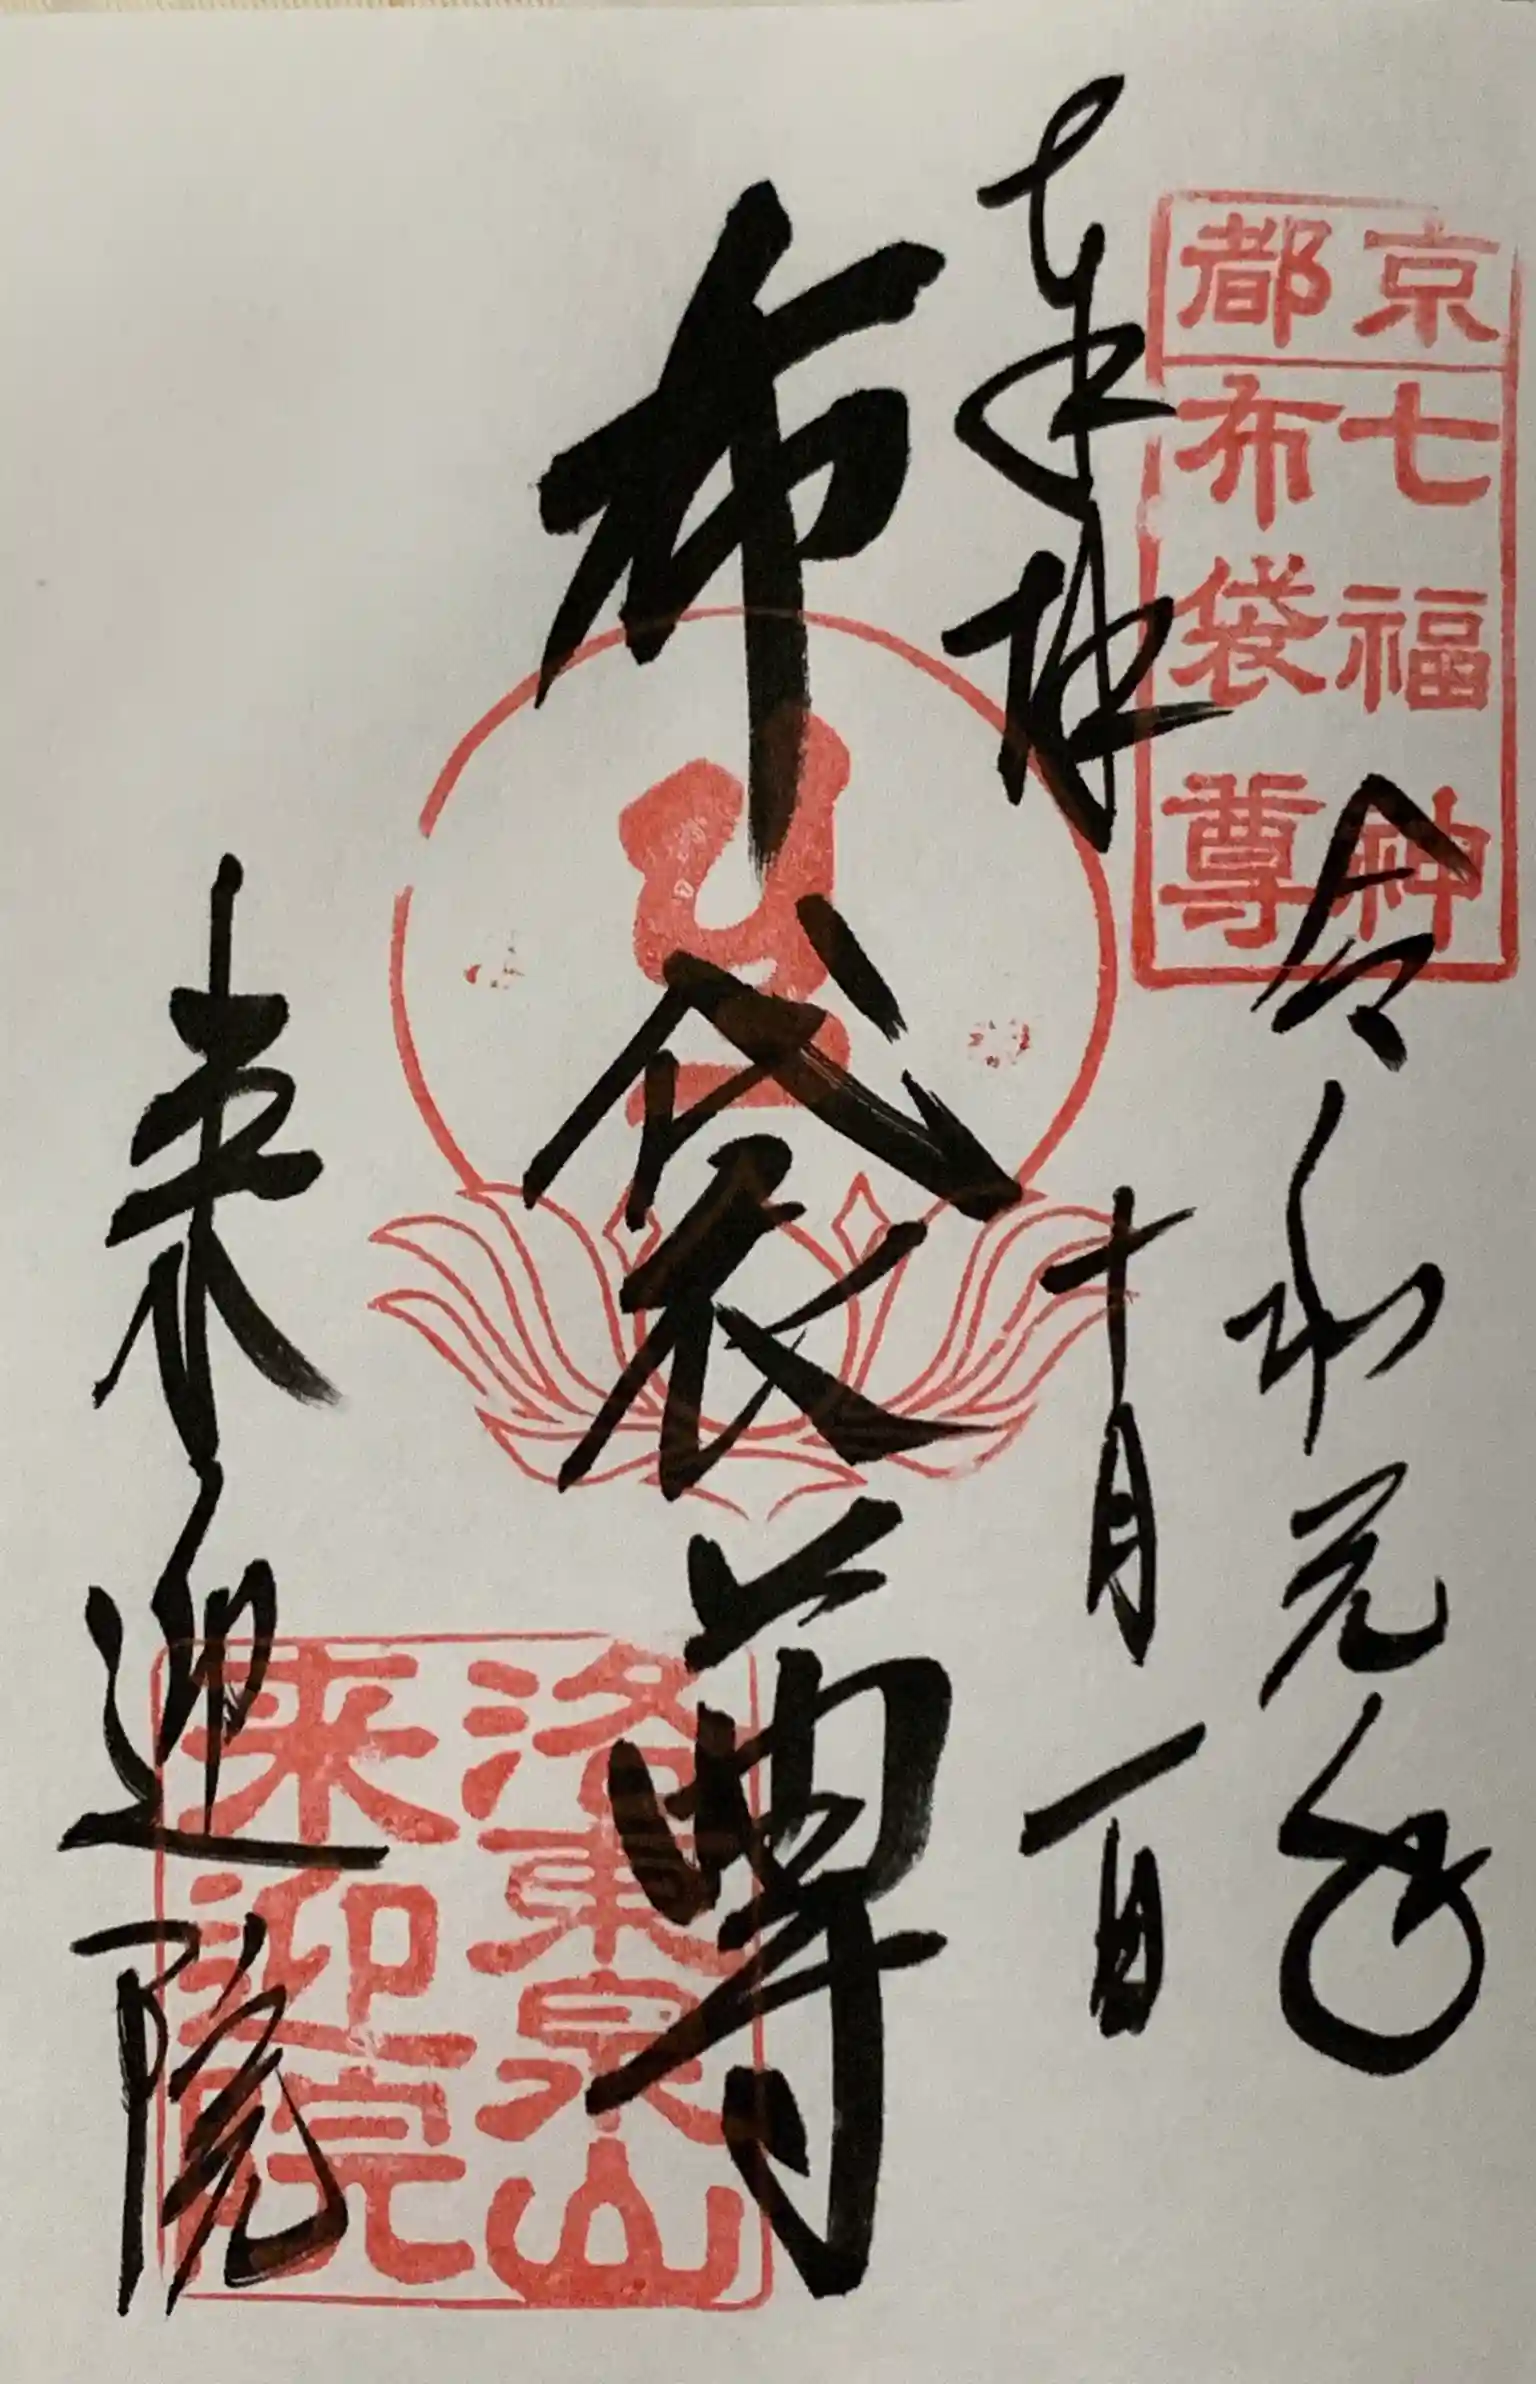 京都
七福神
布袋尊
奉拝
令和元年
十月一日
布袋尊
来迎院
洛東泉山
来迎院